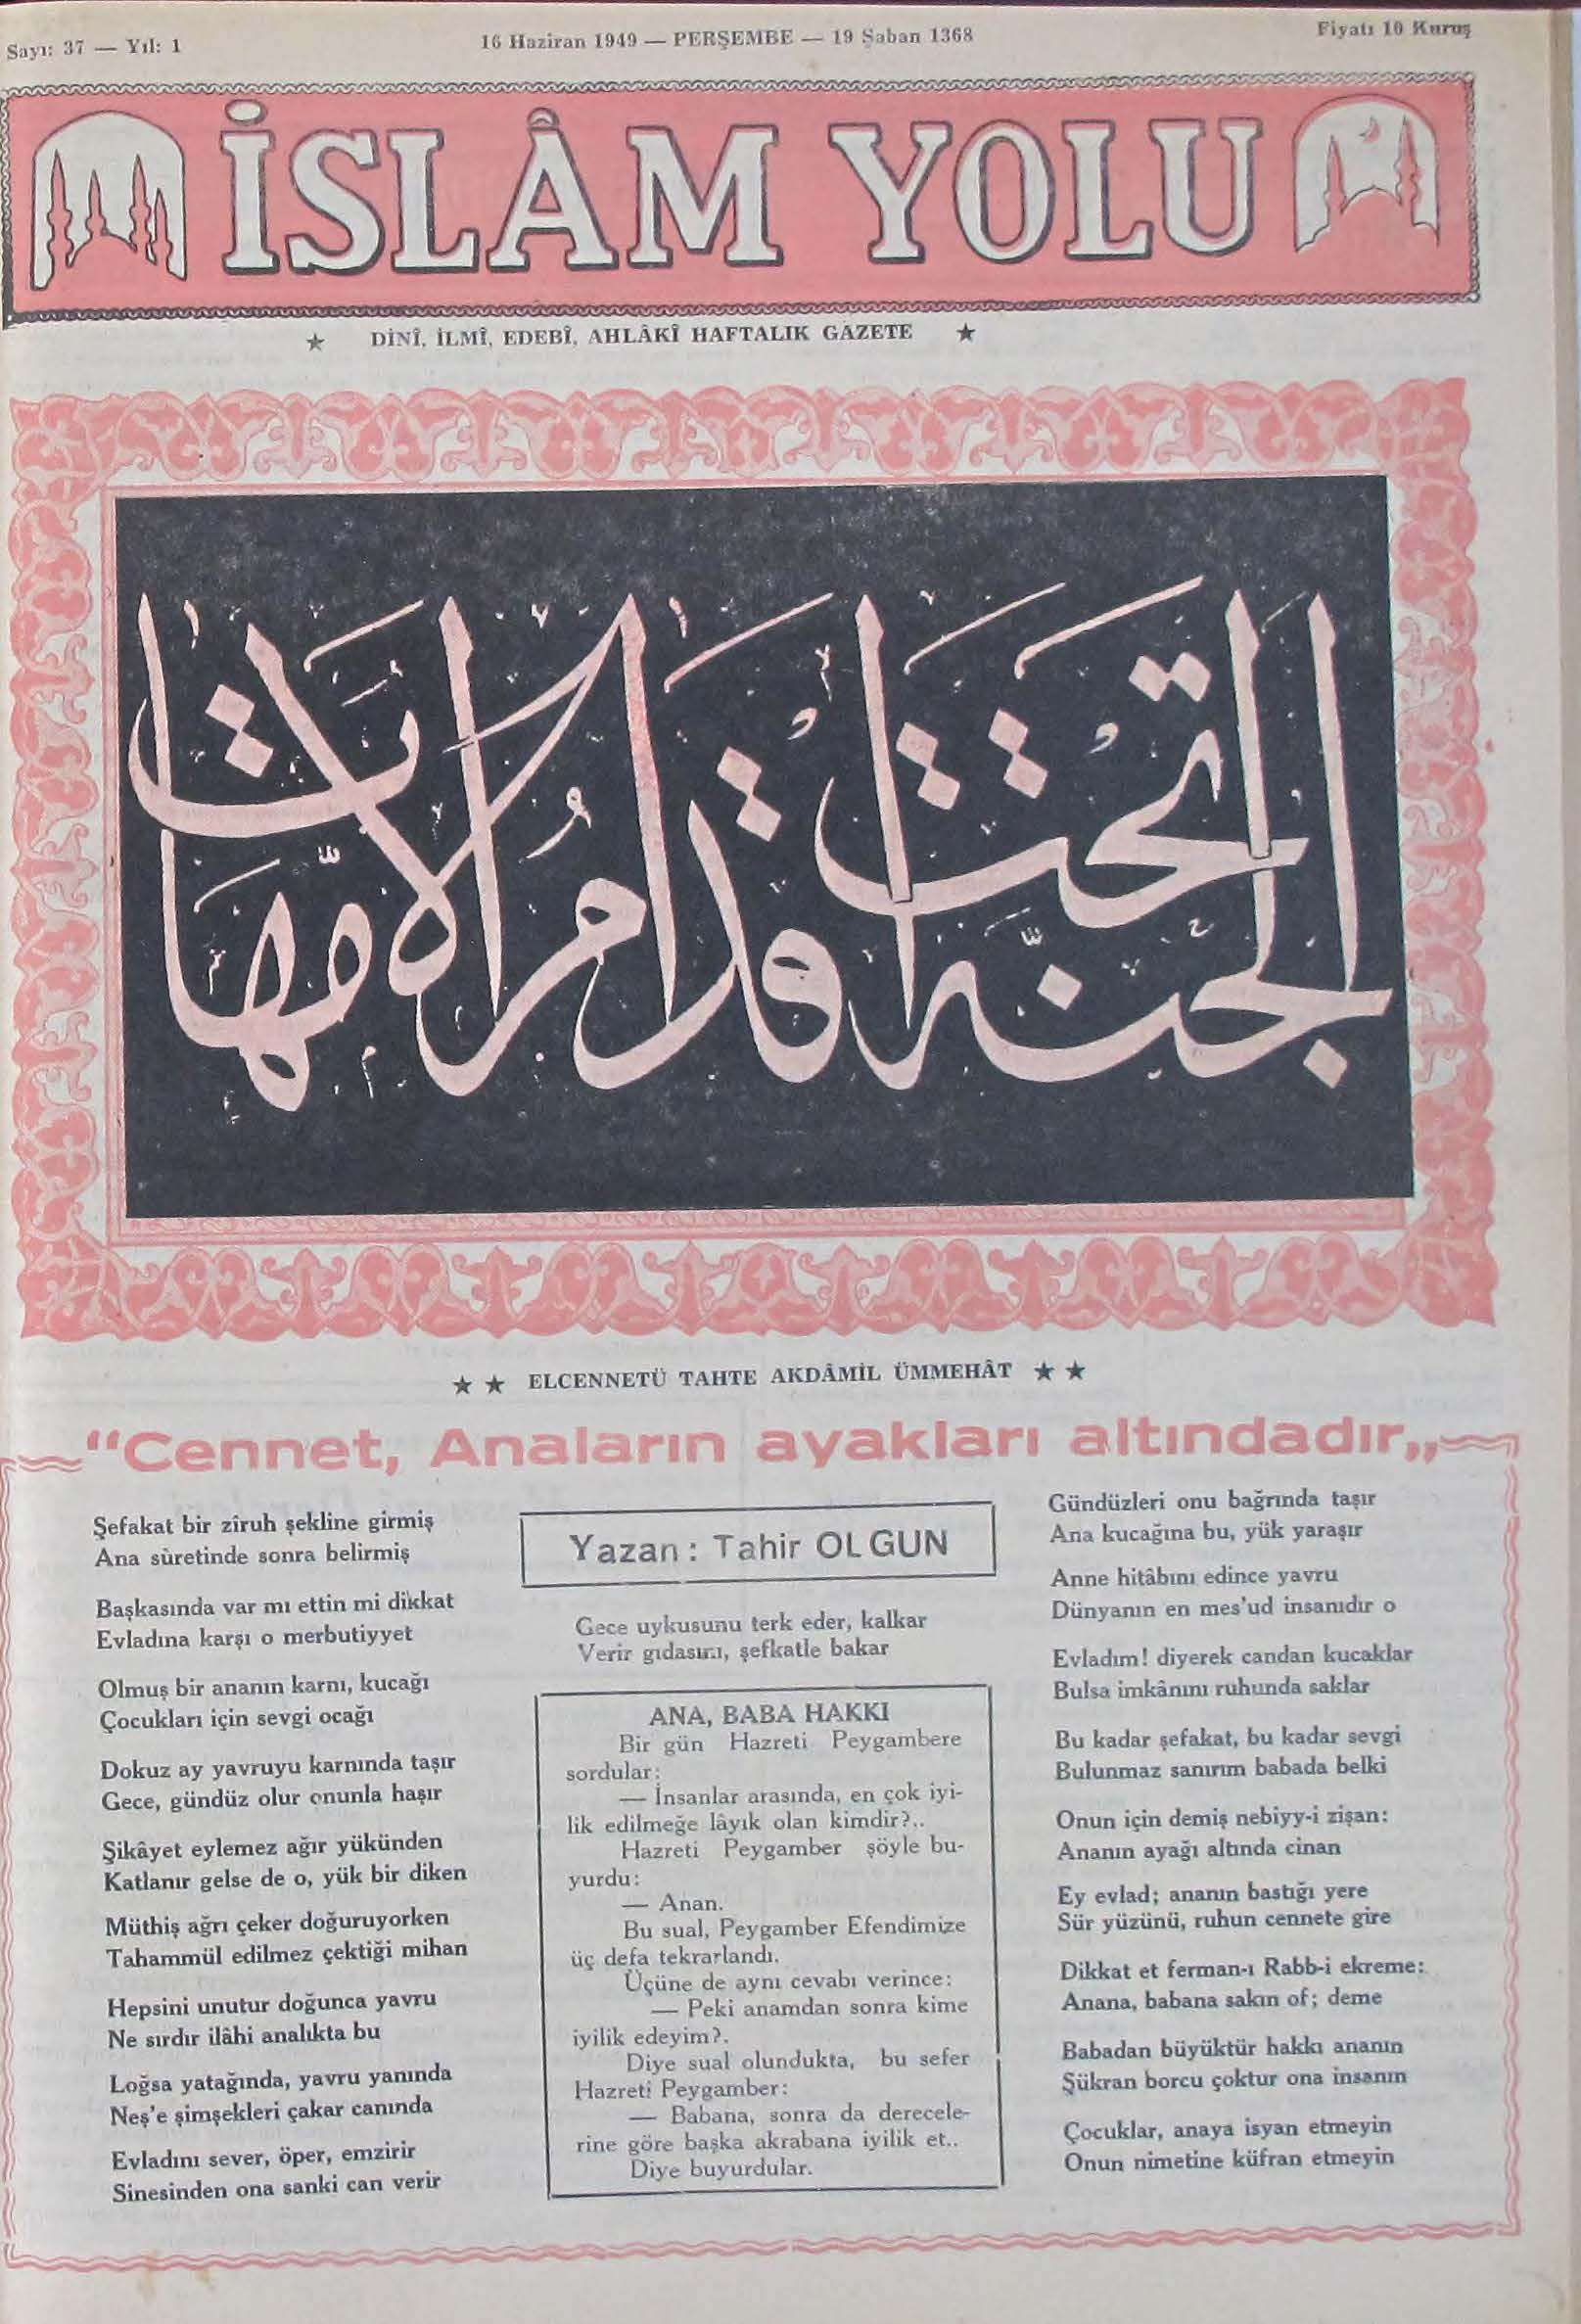 Sayı: 37 — Yıl: 1
16 Haziran 1949 — PERŞEMBE — 19 Şaban 1368
Fiyatı 10 Kuruş
İSLÂM YOLU
★ DİNÎ, İLMÎ, EDEBÎ, AHLÂKÎ HAFTALIK GAZETE ★
الجنة تحت اقدام الامهات
★ ★ ELCENNETÜ TAHTE AKDÂMİL ÜMMEHÂT ★ ★
“Cennet, Anaların ayakları altındadır„
Şefakat bir zîruh şekline girmiş
Ana sûretinde sonra belirmiş
Başkasında var mı ettin mi dikkat
Evladına karşı o merbutiyyet
Olmuş bir ananın karnı, kucağı
Çocukları için sevgi ocağı
Dokuz ay yavruyu karnında taşır
Gece, gündüz olur onunla haşır
Şikâyet eylemez ağır yükünden
Katlanır gelse de o, yük bir diken
Müthiş ağrı çeker doğuruyorken
Tahammül edilmez çektiği mihan
Hepsini unutur doğunca yavru
Ne sırdır ilâhi analıkta bu
Loğsa yatağında, yavru yanında
Neş'e şimşekleri çakar canında
Evladını sever, öper, emzirir
Sinesinden ona sanki can verir
Yazan : Tahir OLGUN
Gece uykusunu terk eder, kalkar
Verir gıdasını, şefkatle bakar
ANA, BABA HAKKI
Bir gün Hazreti Peygambere
sordular:
— İnsanlar arasında, en çok iyi-
lik edilmeğe lâyık olan kimdir?..
Hazreti Peygamber şöyle bu-
yurdu:
— Anan.
Bu sual, Peygamber Efendimize
üç defa tekrarlandı.
Üçüne de aynı cevabı verince:
— Peki anamdan sonra kime
iyilik edeyim?.
Diye sual olundukta, bu sefer
Hazreti Peygamber:
— Babana, sonra da derecele-
rine göre başka akrabana iyilik et..
Diye buyurdular.
Gündüzleri onu bağrında taşır
Ana kucağına bu, yük yaraşır
Anne hitâbını edince yavru
Dünyanın en mes'ud insanıdır o
Evladım! diyerek candan kucaklar
Bulsa imkânını ruhunda saklar
Bu kadar şefakat, bu kadar sevgi
Bulunmaz sanırım babada belki
Onun için demiş nebiyy-i zişan:
Ananın ayağı altında cinan
Ey evlad; ananın bastığı yere
Sür yüzünü, ruhun cennete gire
Dikkat et ferman-ı Rabb-i ekreme:
Anana, babana sakın of; deme
Babadan büyüktür hakkı ananın
Şükran borcu çoktur ona insanın
Çocuklar, anaya isyan etmeyin
Onun nimetine küfran etmeyin